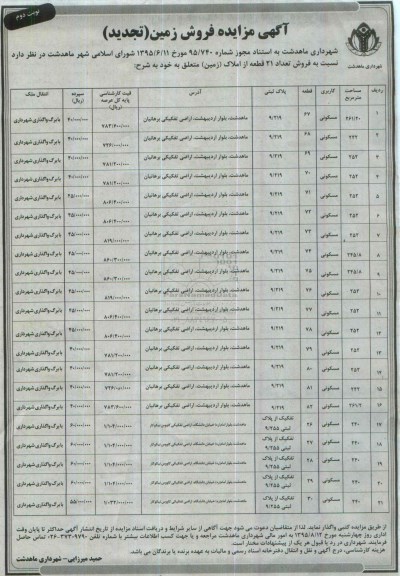 نوبت دوم
آگهی مزایده فروش زمین(تجدید)
شهرداری ماهدشت
شهرداری ماهدشت به استناد مجوز شماره ۹۵/۷۴۰ مورخ ۱۳۹۵/۶/۱۱ شورای اسلامی شهر ماهدشت در نظر دارد
نسبت به فروش تعداد ۲۱ قطعه از املاک (زمین) متعلق به خود به شرح:
ردیف مساحت مترمربع کاربری قطعه پلاک ثبتی آدرس قیمت کارشناسی پایه کل عرصه (ریال) سپرده (ریال) انتقال ملک
۱ ۲۶۱/۲۰ مسکونی ۶۷ ۹/۲۱۹ ماهدشت، بلوار اردیبهشت، اراضی تفکیکی برهانیان ۷۸۳/۶۰۰/۰۰۰ ۴۰/۰۰۰/۰۰۰ با برگ واگذاری شهرداری
۲ مسکونی ۶۸ ۹/۲۱۹ ماهدشت، بلوار اردیبهشت، اراضی تفکیکی برهانیان ۴۰/۰۰۰/۰۰۰ با برگ واگذاری شهرداری
۳ ۲۵۲ مسکونی ۶۹ ۹/۲۱۹ ماهدشت، بلوار اردیبهشت، اراضی تفکیکی برهانیان ۷۸۱/۲۰۰/۰۰۰ ۴۰/۰۰۰/۰۰۰ با برگ واگذاری شهرداری
۴ ۲۵۲ مسکونی ۷۰ ۹/۲۱۹ ماهدشت، بلوار اردیبهشت، اراضی تفکیکی برهانیان ۷۸۱/۲۰۰/۰۰۰ ۴۰/۰۰۰/۰۰۰ با برگ واگذاری شهرداری
۵ ۲۵۲ مسکونی ۷۱ ۹/۲۱۹ ماهدشت، بلوار اردیبهشت، اراضی تفکیکی برهانیان ۸۰۶/۴۰۰/۰۰۰ با برگ واگذاری شهرداری
۶ ۲۵۲ مسکونی ۷۲ ۹/۲۱۹ ماهدشت، بلوار اردیبهشت، اراضی تفکیکی برهانیان ۸۰۶/۴۰۰/۰۰۰ با برگ واگذاری شهرداری
۷ ۲۵۲ مسکونی ۷۳ ۹/۲۱۹ ماهدشت، بلوار اردیبهشت، اراضی تفکیکی برهانیان ۸۱۹/۰۰۰/۰۰۰ با برگ واگذاری شهرداری
۸ ۲۴۵/۸ مسکونی ۷۴ ۹/۲۱۹ ماهدشت، بلوار اردیبهشت، اراضی تفکیکی برهانیان ۸۶۰/۳۰۰/۰۰۰ با برگ واگذاری شهرداری
۹ ۲۴۵/۸ مسکونی ۷۵ ۹/۲۱۹ ماهدشت، بلوار اردیبهشت، اراضی تفکیکی برهانیان ۸۶۰/۳۰۰/۰۰۰ با برگ واگذاری شهرداری
۱۰ ۲۵۲ مسکونی ۷۶ ۹/۲۱۹ ماهدشت، بلوار اردیبهشت، اراضی تفکیکی برهانیان ۸۱۹/۰۰۰/۰۰۰ با برگ واگذاری شهرداری
۱۱ ۲۵۲ مسکونی ۷۷ ۹/۲۱۹ ماهدشت، بلوار اردیبهشت، اراضی تفکیکی برهانیان ۸۰۶/۴۰۰/۰۰۰ با برگ واگذاری شهرداری
۱۲ ۲۵۲ مسکونی ۷۸ ۹/۲۱۹ ماهدشت، بلوار اردیبهشت، اراضی تفکیکی برهانیان ۸۰۶/۴۰۰/۰۰۰ با برگ واگذاری شهرداری
۱۳ ۲۵۲ مسکونی ۷۹ ۹/۲۱۹ ماهدشت، بلوار اردیبهشت، اراضی تفکیکی برهانیان ۷۸۱/۲۰۰/۰۰۰ ۴۰/۰۰۰/۰۰۰ با برگ واگذاری شهرداری
۲۵۲ مسکونی ۸۰ ۹/۲۱۹ ماهدشت، بلوار اردیبهشت، اراضی تفکیکی برهانیان ۷۸۱/۲۰۰/۰۰۰ ۴۰/۰۰۰/۰۰۰ با برگ واگذاری شهرداری
۱۵ مسکونی ۸۱ ۹/۲۱۹ ماهدشت، بلوار اردیبهشت، اراضی تفکیکی برهانیان ۴۰/۰۰۰/۰۰۰ با برگ واگذاری شهرداری
۱۶ مسکونی ۸۲ ۹/۲۱۹ ماهدشت، بلوار اردیبهشت، اراضی تفکیکی برهانیان ۴۰/۰۰۰/۰۰۰ با برگ واگذاری شهرداری
۱۷ ۲۴۰ مسکونی ۲۶ تفکیک از پلاک ثبتی ۹/۲۵۵ ۱/۱۰۴/۰۰۰/۰۰۰ با برگ واگذاری شهرداری
۱۸ ۲۴۰ مسکونی ۲۷ تفکیک از پلاک ثبتی ۹/۲۵۵ ۱/۱۰۴/۰۰۰/۰۰۰ با برگ واگذاری شهرداری
۱۹ ۲۴۰ مسکونی ۲۸ تفکیک از پلاک ثبتی ۹/۲۵۵ ۱/۱۰۴/۰۰۰/۰۰۰ با برگ واگذاری شهرداری
۲۰ ۲۴۰ مسکونی ۲۹ تفکیک از پلاک ثبتی ۹/۲۵۵ ۱/۱۰۴/۰۰۰/۰۰۰ با برگ واگذاری شهرداری
۲۱ ۲۴۰ مسکونی ۳۰ تفکیک از پلاک ثبتی ۹/۲۵۵ ۱/۰۳۲/۰۰۰/۰۰۰ ۵۵/۰۰۰/۰۰۰ با برگ واگذاری شهرداری
از طریق مزایده کتبی واگذار نماید. لذا از متقاضیان دعوت می شود جهت آگاهی از سایر شرایط و دریافت اسناد مزایده از تاریخ انتشار آگهی حداکثر تا پایان وقت
اداری روز چهارشنبه مورخ ۱۳۹۵/۸/۱۲ به امور مالی شهرداری ماهدشت مراجعه و یا جهت کسب اطلاعات بیشتر با شماره تلفن ۹۷۹۰-۰۲۶-۳۷۳۰ تماس حاصل
فرمایند. شهرداری در رد یا قبول هر یک از پیشنهادات مختار است.
هزینه کارشناسی، درج آگهی و نقل و انتقال دفترخانه اسناد رسمی و مالیات به عهده برنده یا برندگان می باشد.
حمید میرزایی- شهرداری ماهدشت